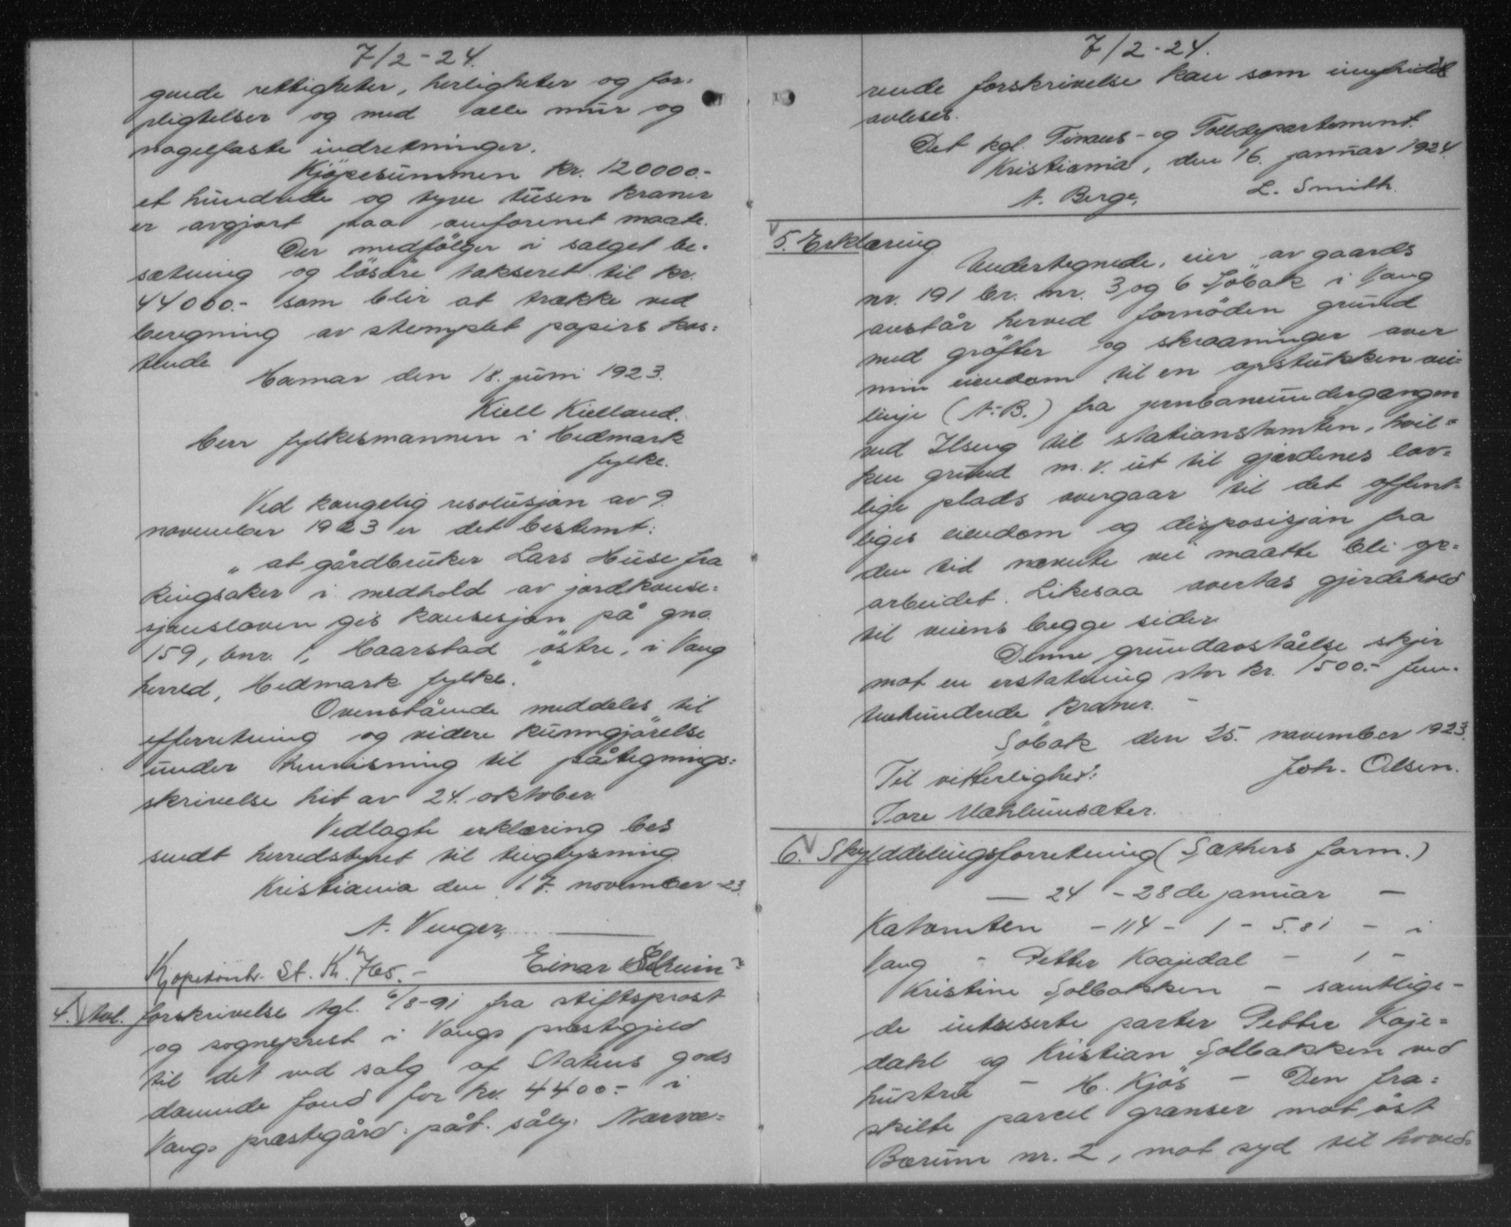 7/2-24.
gende rettigheter, herligheter og for=
pligtelser og med alle mur og
nagelfaste indretninger.
Kjöpesummen kr. 120000.-
et hundrede og tyve tusen kroner
er avgjort paa omforenet maate.
Der medfölger i salget be=
sætning og lösöre takseret til kr.
44000.- som blir at trække ved
beregning av stemplet papirs kos=
tende
Hamar den 18. juni 1923.
Kiell Kielland.
Herr fylkesmannen i Hedmark
fylke.
Ved kongelig resolusjon av 9.
november 1923 er det bestemt:
"at gårdbruker Lars Huse fra
Ringsaker i medhold av jordkonse=
sjonsloven gis konsesjon på gno.
159, bnr. 1, Haarstad östre, i Vang
herred, Hedmark fylke."
Ovenstående meddeles til
efterretning og videre kunngjörelse
under henvisning til påtegnings=
skrivelse hit av 24. oktober.
Vedlagte erklæring bes
sendt herredstyret til tinglysning
Kristiania den 17. november -23.
A. Venger,
Kopekontr. St. Kr. 765.- Einar
4. Avl. forskrivelse tgl. 6/8-91 fra stiftsprost
og sogneprest i Vangs præstegjeld
til det ved salg af Statens gods
dannede fond for kr. 4400.- i
Vangs præstegård. påt. såly. Nærvæ=
7/2-24.
rende forskrivelse kan som innfridd
avleses.
Det kgl. Finans- og Tolldepartement.
Kristiania, den 16. januar 1924.
A. Berge, L. Smith.
5. Erklæring
Undertegnede, eier av gaards
nr. 191 br. nr. 3 og 6 Söbak i Vang
avstår herved fornöden grund
med gröfter og skraaninger over
min eiendom til en opstukken vei=
linje (A-B.) fra jernbaneundergangen
ved Ilseng til stationstomten, hvil=
ken grund m.v. ut til gjerdenes lov=
lige plads overgaar til det offent=
liges eiendom og disposisjon fra
den tid nævnte vei maatte bli op=
arbeidet. Likesaa overtas gjerdehold
til veiens begge sider
Denne grundavståelse skjer
mot en erstatning stor kr. 1500.- fem=
tenhundrede kroner. -
Söbak den 25. november 1923.
Til vitterlighet: Joh. Olsen.
Tore Mæhlumsæter.
6. Skylddelingsforretning (Sæthers form.)
— 24 - 28de januar —
Katomten - 114 - 1 - 5.81 - i
Vang - Petter Kaajedal - 1 -
Kristine Solbakken - samtlige-
de interserte parter Petter Kaje=
dahl og Kristian Solbakken ved
hustru - H. Kjös - Den fra=
skilte parcel grænser mot öst
Bærum nr. 2, mot syd til hoved=